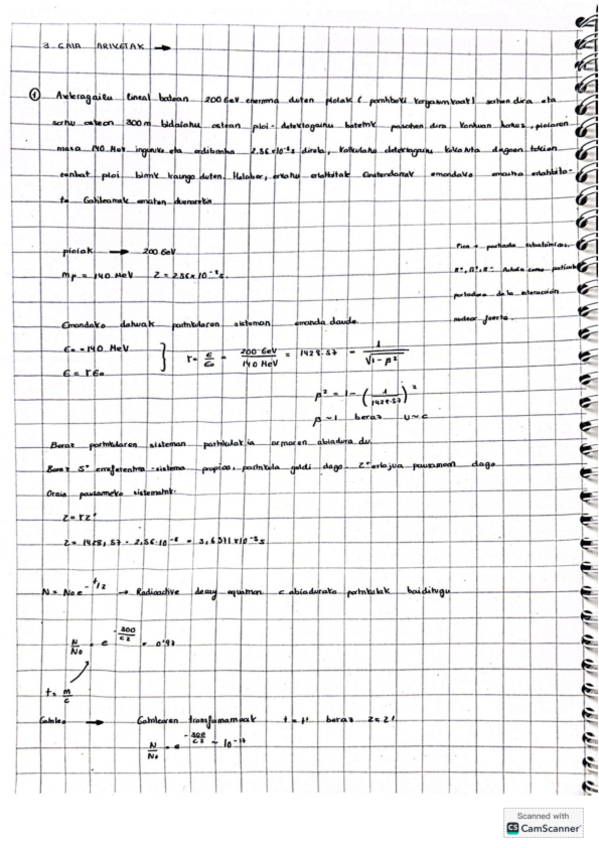 3. GAIA ARIKETAK →
① Azeleragailu lineal batean 200 GeV energia duten pioiak (partikula kargatuak) sortzen dira eta
sortu ostean 300 m bidaiatu ostean pioi-detektagailu batetik pasatzen dira. Kontuan hartuz, pioiaren
masa 140 MeV ingurukoa eta erdibizitza 2.56×10⁻⁸s direla, kalkulatu detektagailua kokatuta dagoen tokian
zenbat pioi bizirik iraungo duten. Halaber, erlatibitate emandako emaitza
Galileanak ematen duenarekin
pioiak → 200 GeV
mp = 140 MeV Z = 2.56×10⁻⁸s.
Pion = partícula subatómica.
π⁰, π⁺, π⁻ Actúa como partícula
portadora de la interacción
nuclear fuerte.
Emandako datuak partikularen sisteman emanda daude
ε₀ = 140 MeV
ε = rε₀
r = ε/ε₀ = 200 GeV/140 MeV = 1428.57 = 1/√(1-β²)
β² = 1 - (1/1428.57)²
β ~ 1 beraz v ~ c
Beraz partikularen sisteman partikulak ia argiaren abiadura du.
Beraz S' erreferentzia-sistema propioa, partikula geldi dago. Z' erlojua pausagunean dago
Orain pausaguneko sistematik:
Z = rZ'
Z = 1428,57 · 2,56·10⁻⁸ = 3,6571×10⁻⁵s
N = N₀e^(-t/Z) → Radioactive decay equation c abiadurako partikulak baiditugu
N/N₀ = e^(-300/cZ) = 0'97
t = m/c
Galileo → Galilearen transformazioak t = t' beraz Z = Z'
N/N₀ = e^(-300/cZ) ~ 10⁻¹⁷
Scanned with
CS CamScanner